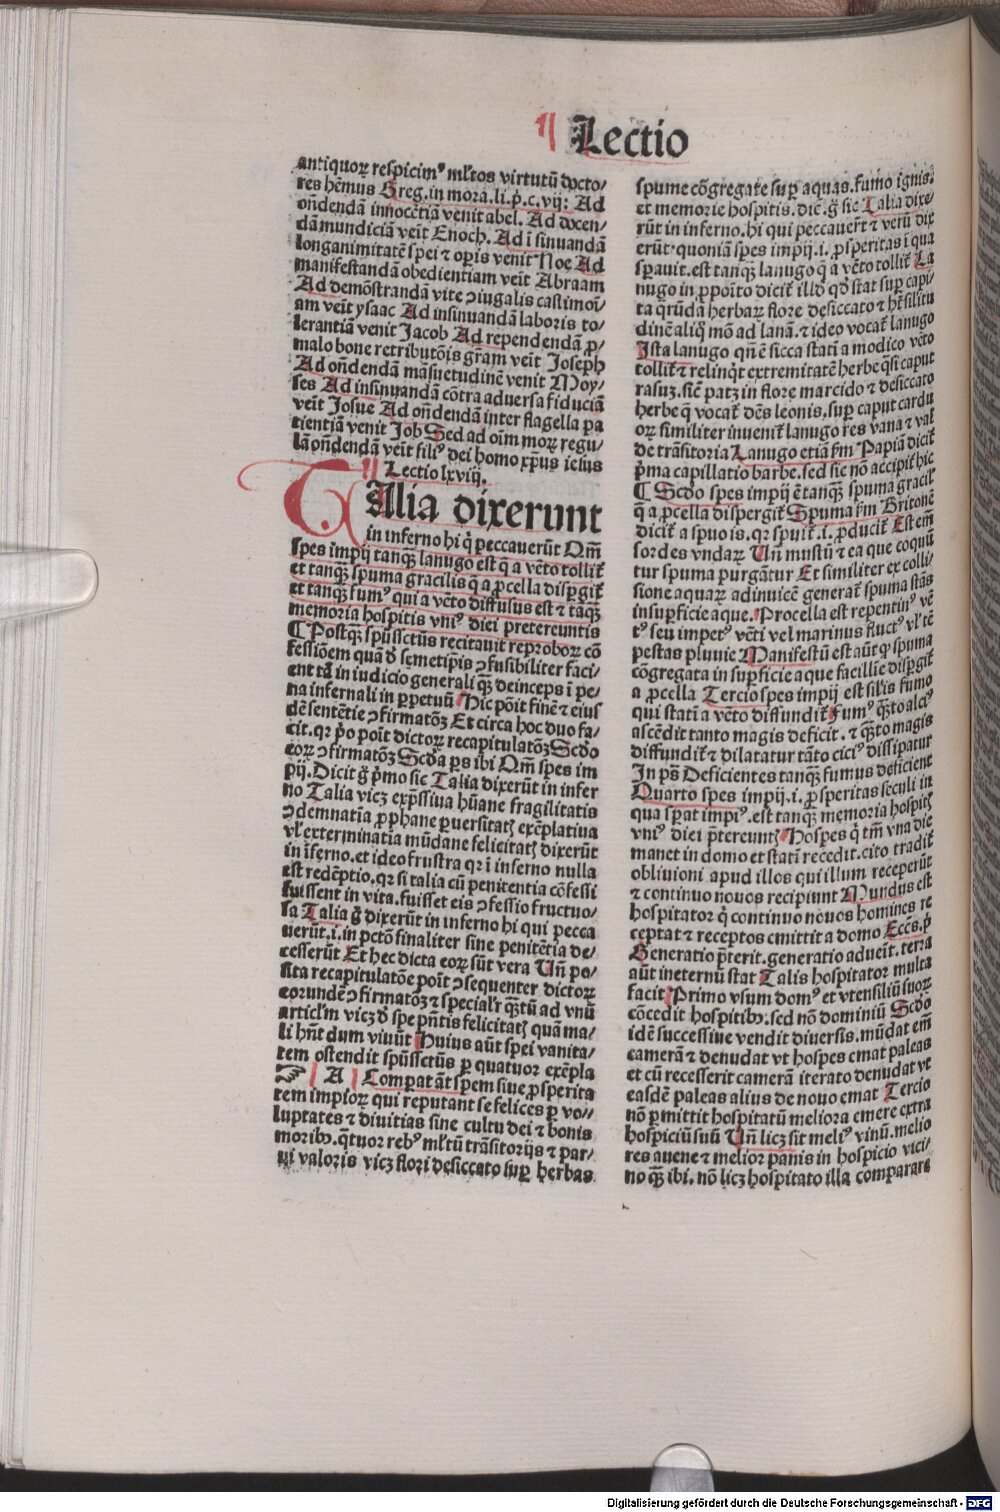 ¶ Lectio
antiquoꝝ respicimꝰ ml̓tos virtutū docto/
res hēmus Greg. in mora. li. p̄. c. vij: Ad
oñdendā innocētiā venit abel. Ad docen/
dā mundiciā veīt Enoch. Ad ī sinuandā
longanimitatē spei ⁊ oꝑis venit Noe Ad
manifestandā obedientiam veīt Abraam
Ad demōstrandā vite ꝯiugalis castimoī/
am veīt ysaac Ad insinuandā laboris to/
lerantiā venit Jacob Ad rependendā ꝓ/
malo bone retributōis gr̄am veīt Joseph
Ad oñdendā māsuetudinē venit Moy/
ses Ad insinuandā cōtra aduersa fiduciā
veīt Josue Ad oñdendā inter flagella pa
tientiā venit Job Sed ad oīm moꝝ regu/
lā oñdendā veīt filiꝰ dei homo xp̄us iesus
¶ Lectio lxviij.
TAlia dixerunt
in inferno hi q̄ peccauerūt Qm̄
spes impij tanqꝫ lanugo est q̄ a vēto tollit̄
et tanqꝫ spuma gracilis q̄ a ꝓcella disꝑgit̄
et tanqꝫ fumꝰ qui a vēto diffusus est ⁊ tāqꝫ
memoria hospitis vniꝰ diei pretereuntis
¶ Postqꝫ spūssctūs recitauit reproboꝝ cō
fessiōem quā d̓ semetip̄is ꝯfusibiliter faci/
ent tā in iudicio generali qꝫ deinceps ī pe/
na infernali in ꝑpetuū Hic pōit finē ⁊ eius
dē sentētie ꝯfirmatōꝫ Et circa hoc duo fa/
cit. qꝛ p̄o poīt dictoꝝ recapitulatōꝫ Scd̓o
eoꝝ ꝯfirmatōꝫ Scd̓a ꝑs ibi Qm̄ spes im
pij. Dicit g̓ p̄mo sic Talia dixerūt in infer
no Talia vicꝫ exp̄ssiua hūane fragilitatis
ꝯdemnatia ꝓphane ꝑuersitatꝭ exēplatiua
vl̓ exterminatia mūdane felicitatꝭ dixerūt
in īferno. et ideo frustra qꝛ ī inferno nulla
est redēptio. qꝛ si talia cū penitentia cōfessi
fuissent in vita. fuisset eis ꝯfessio fructuo/
sa Talia g̓ dixerūt in inferno hi qui pecca
uerūt. i. in pctō finaliter sine penitētia de/
cesserūt Et hec dicta eoꝝ sūt vera Un̄ po/
sita recapitulatōe poīt ꝯsequenter dictoꝝ
eorundē ꝯfirmatōꝫ ⁊ special̓r qꝫtū ad vnū
articl̓m vicꝫ d̓ spe p̄ntis felicitatꝭ quā ma/
li hn̄t dum viuūt Huius aūt spei vanita/
tem ostendit spūssctūs ꝑ quatuor exēpla
☞ A Comꝑat āt spem siue ꝓsperita
tem impioꝝ qui reputant se felices ꝑ vo//
luptates ⁊ diuitias sine cultu dei ⁊ bonis
moribꝫ. q̄tuor rebꝰ ml̓tū trāsitorijs ⁊ par/
ui valoris vicꝫ flori desiccato suꝑ herbas
spume cōgregate suꝑ aquas. fumo ignis.
et memorie hospitis. dic̄ g̓ sic Talia dixe/
rūt in inferno. hi qui peccauer̄t ⁊ verū dix
erūt. quoniā spes impij. i. ꝓsperitas ī qua
sꝑauit. est tanqꝫ lanugo q̄ a vēto tollit̄ La
nugo in ꝓpoīto dicit̄ illd̓ qd̓ stat suꝑ capi/
ta qrūdā herbaꝝ flore desiccato ⁊ hꝫ similitu
dinē aliq̄ mō ad lanā. ⁊ ideo vocat̄ lanugo
Ista lanugo qn̄ ē sicca statī a modico vēto
tollit̄ ⁊ relinq̄t extremitatē herbe qͣsi caput
rasuꝫ. sic̄ patꝫ in flore marcido ⁊ desiccato
herbe q̄ vocat̄ dēs leonis. suꝑ caput cardu
oꝝ similiter inuenit̄ lanugo res vana ⁊ val̓
de trāsitoria Lanugo etiā fm̄ Papiā dicit̄
p̄ma capillatio barbe. sed sic nō accipit̄ hic
¶ Scd̓o spes impij ē tanqꝫ spuma gracil̓
q̄ a ꝓcella dispergit̄ Spuma fm̄ Britonē
dicit̄ a spuo is. qꝛ spuit̄. i. ꝓducit̄ Est em̄
sordes vndaꝝ Un̄ mustū ⁊ ea que coquū
tur spuma purgātur Et similiter ex colli/
sione aquaꝝ adinuicē generat̄ spuma stās
in suꝑficie aque. Procella est repentinꝰ vē
tꝰ seu impetꝰ vēti vel marinus fluctꝰ vl̓ tē
pestas pluuie Manifestū est aūt qꝫ spuma
cōgregata in suꝑficie aque facillīe disꝑgit̄
a ꝓcella Tercio spes impij est sil̓is fumo
qui statī a vēto diffundit̄ Fumꝰ qͣꝫto alciꝰ
ascēdit tanto magis deficit. ⁊ qͣꝫto magis
diffundit̄ ⁊ dilatatur tāto ciciꝰ dissipatur
In ps̄ Deficientes tanqꝫ fumus deficient
Quarto spes impij. i. ꝓsperitas seculi in
qua sꝑat impiꝰ. est tanqꝫ memoria hospitꝭ
vniꝰ diei p̄tereuntꝭ Hospes q̄ tm̄ vna die
manet in domo et statī recedit. cito tradit̄
obliuioni apud illos qui illum receperūt
⁊ continuo nouos recipiunt Mundus est
hospitator q̄ continuo nouos homines re
ceptat ⁊ receptos emittit a domo Ecc̄s. p̄
Generatio p̄terit. generatio adueīt. terra
aūt in eternū stat Talis hospitator multa
facit Primo vsum domꝰ et vtensiliū suoꝝ
cōcedit hospitibꝫ. sed nō dominiū Scd̓o
idē successiue vendit diuersis. mūdat em̄
camerā ⁊ denudat vt hospes emat paleas
et cū recesserit camerā iterato denudat vt
easdē paleas alius de nouo emat Tercio
nō ꝑmittit hospitatū meliora emere extra
hospiciū suū Un̄ licꝫ sit meliꝰ vinū. melio
res auene ⁊ melior panis in hospicio vici/
no qꝫ ibi. nō licꝫ hospitato illa comparare
Digitalisierung gefördert durch die Deutsche Forschungsgemeinschaft - DFG